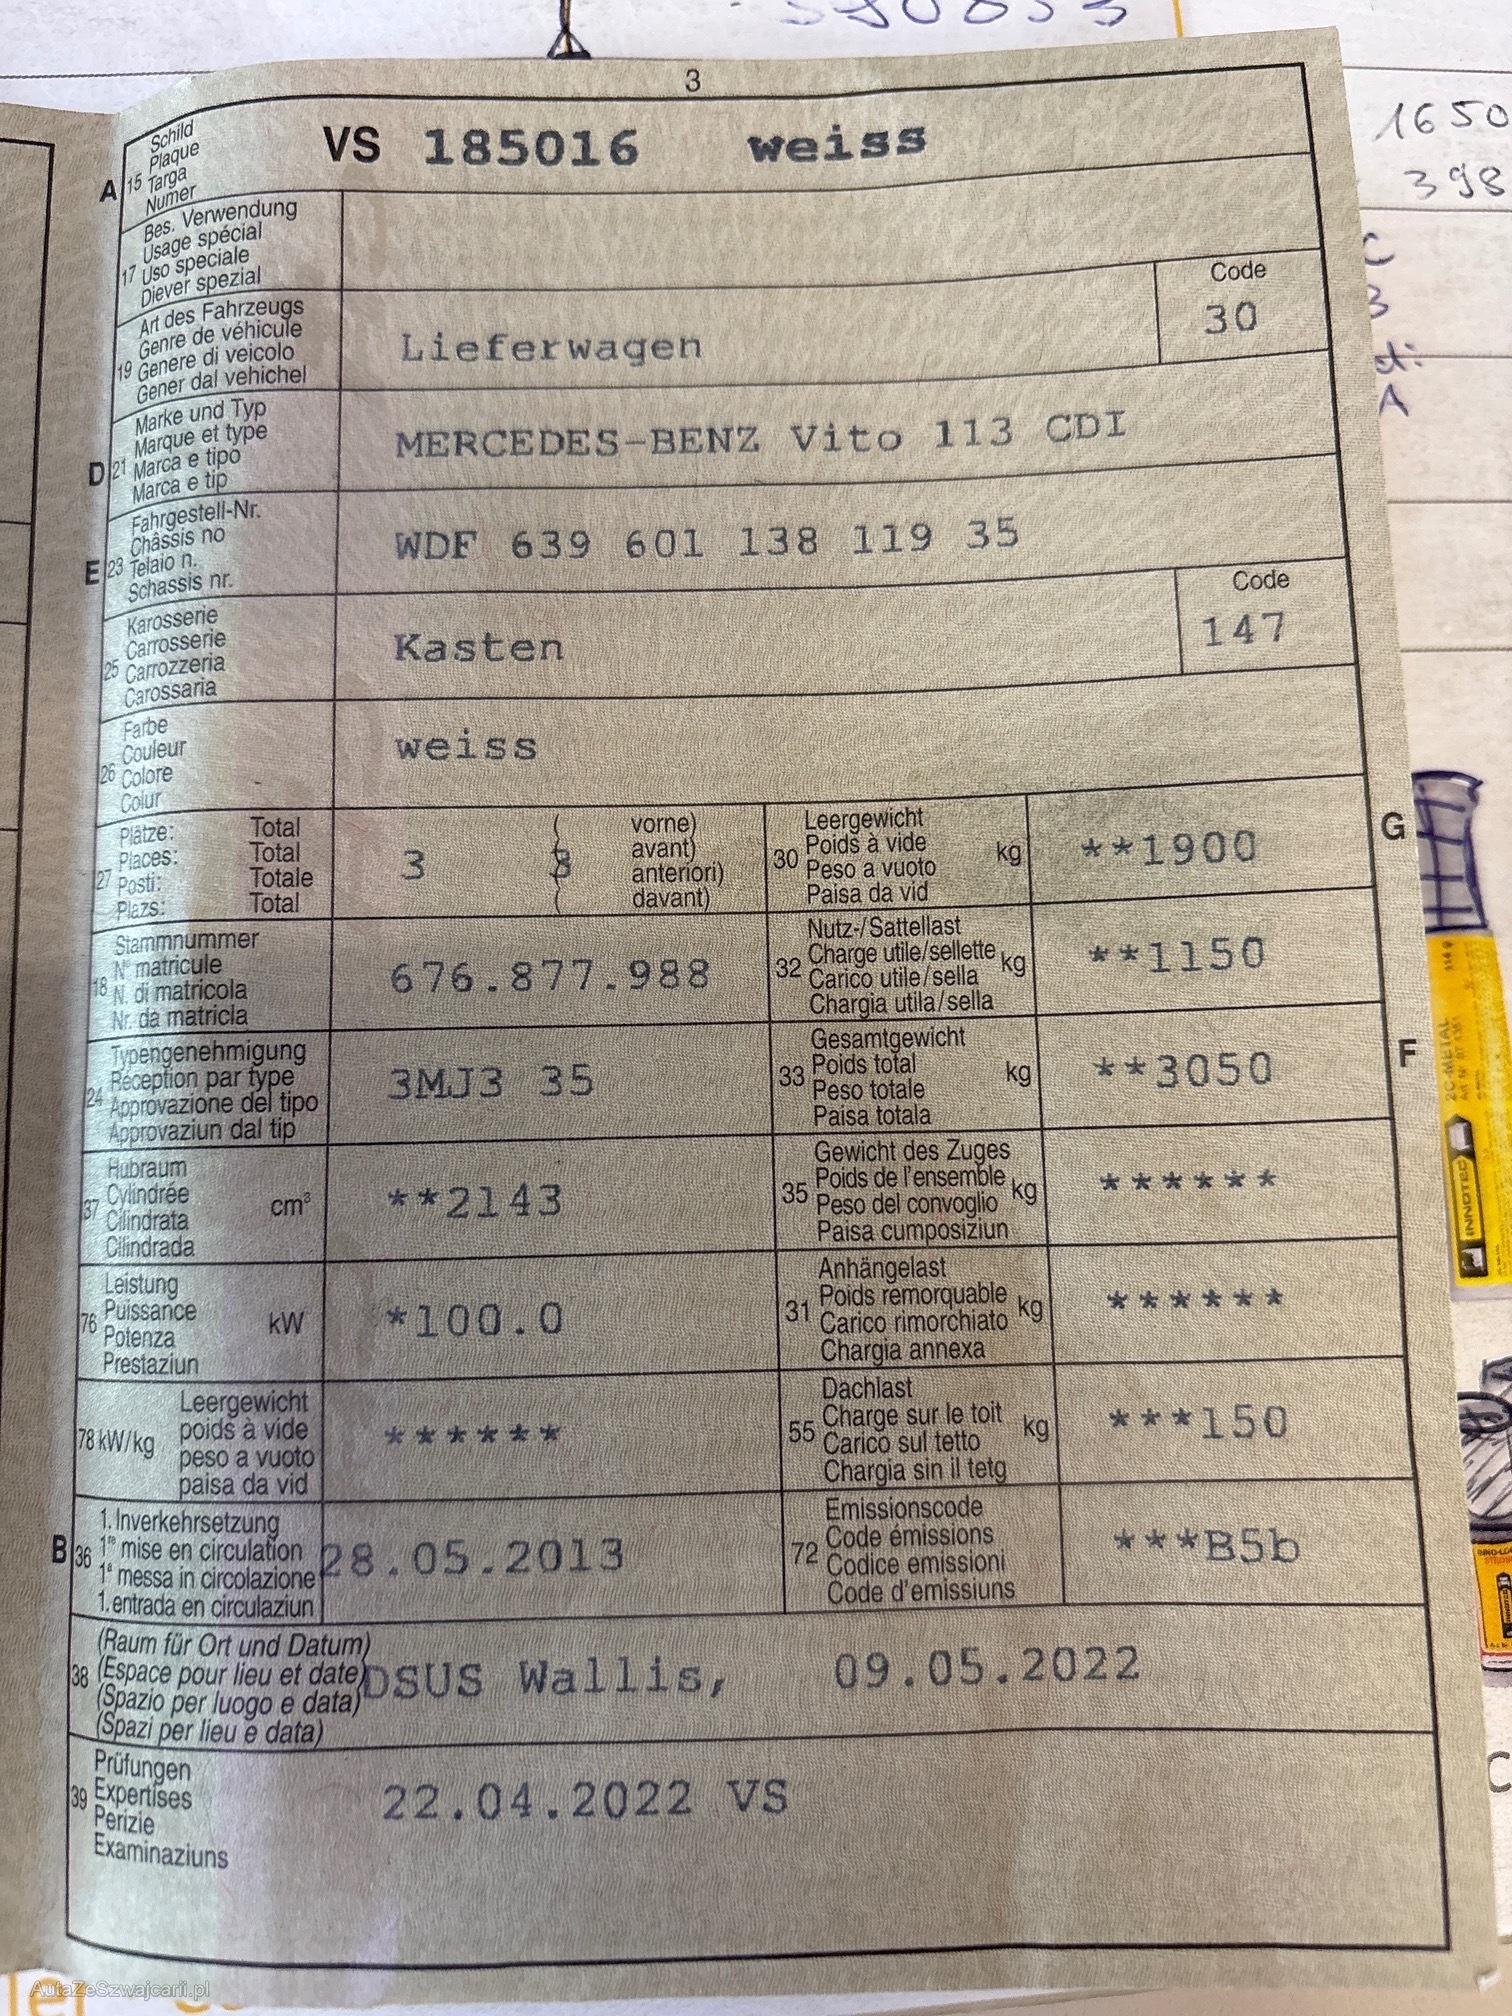 3
A 15 Schild
Plaque
Targa
Numer
VS 185016 weiss
17 Bes. Verwendung
Usage spécial
Uso speciale
Diever spezial
19 Art des Fahrzeugs
Genre de véhicule
Genere di veicolo
Gener dal vehichel
Lieferwagen
Code
30
D 21 Marke und Typ
Marque et type
Marca e tipo
Marca e tip
MERCEDES-BENZ Vito 113 CDI
E 23 Fahrgestell-Nr.
Châssis no
Telaio n.
Schassis nr.
WDF 639 601 138 119 35
25 Karosserie
Carrosserie
Carrozzeria
Carossaria
Kasten
Code
147
26 Farbe
Couleur
Colore
Colur
weiss
27 Plätze: Total
Places: Total
Posti: Totale
Plazs: Total
3 ( 3 vorne)
avant)
anteriori)
davant)
30 Leergewicht
Poids à vide
Peso a vuoto
Paisa da vid
kg
**1900
G
18 Stammnummer
N° matricule
N. di matricola
Nr. da matricla
676.877.988
32 Nutz-/Sattellast
Charge utile/sellette
Carico utile/sella
Chargia utila/sella
kg
**1150
24 Typengenehmigung
Réception par type
Approvazione del tipo
Approvaziun dal tip
3MJ3 35
33 Gesamtgewicht
Poids total
Peso totale
Paisa totala
kg
**3050
F
37 Hubraum
Cylindrée
Cilindrata
Cilindrada
cm³
**2143
35 Gewicht des Zuges
Poids de l'ensemble
Peso del convoglio
Paisa cumposiziun
kg
******
76 Leistung
Puissance
Potenza
Prestaziun
kW
*100.0
31 Anhängelast
Poids remorquable
Carico rimorchiato
Chargia annexa
kg
******
78 kW/kg Leergewicht
poids à vide
peso a vuoto
paisa da vid
******
55 Dachlast
Charge sur le toit
Carico sul tetto
Chargia sin il tetg
kg
***150
B 36 1. Inverkehrsetzung
1re mise en circulation
1a messa in circolazione
1. entrada en circulaziun
28.05.2013
72 Emissionscode
Code émissions
Codice emissioni
Code d'emissiuns
***B5b
38 (Raum für Ort und Datum)
(Espace pour lieu et date)
(Spazio per luogo e data)
(Spazi per lieu e data)
DSUS Wallis, 09.05.2022
39 Prüfungen
Expertises
Perizie
Examinaziuns
22.04.2022 VS
1650
398
2C-METAL
INNOTEC
AutaZeSzwajcarii.pl